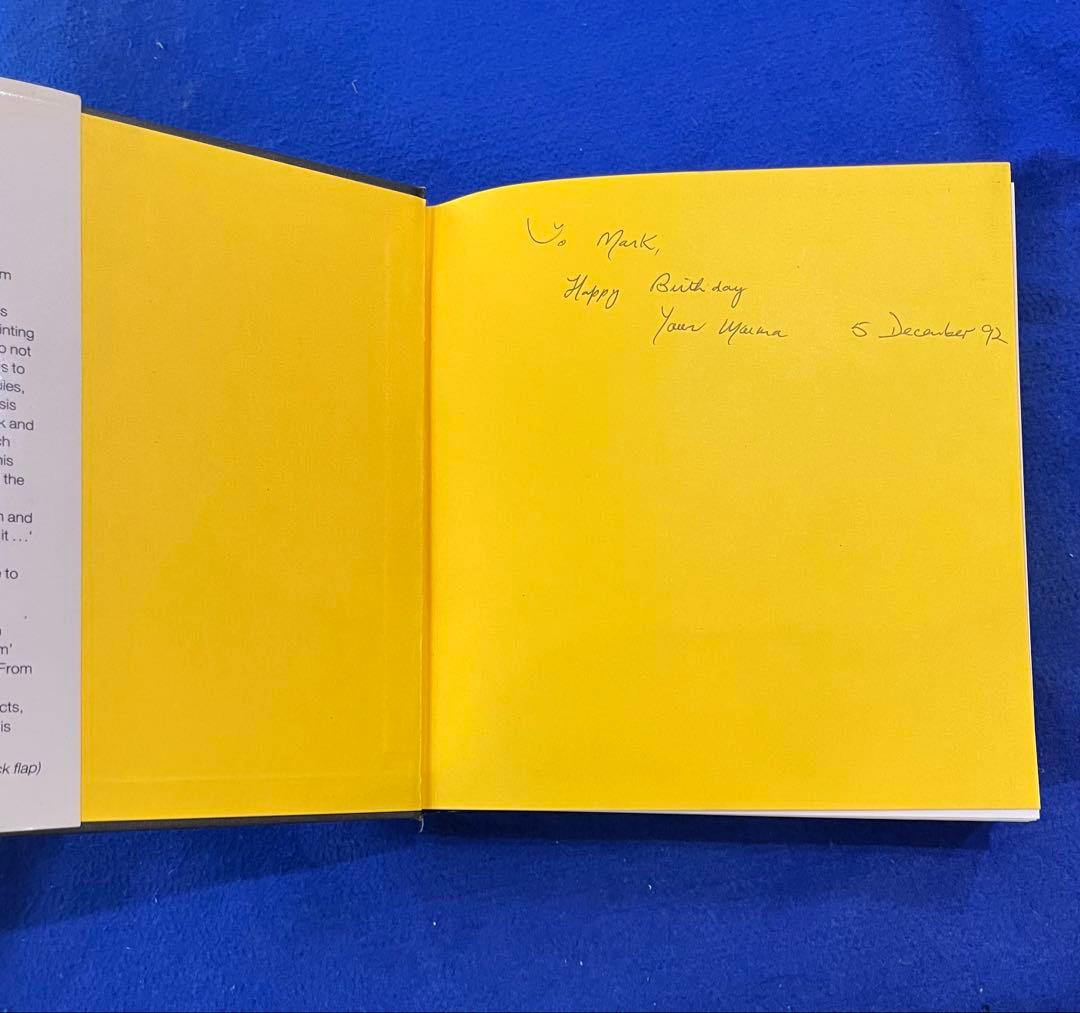 m
s
inting
o not
s to
ies,
sis
k and
ch
his
the
n and
it ...'
to
m'
From
cts,
is
ck flap)
To Mark,
Happy Birthday
Your Mama 5 December 92